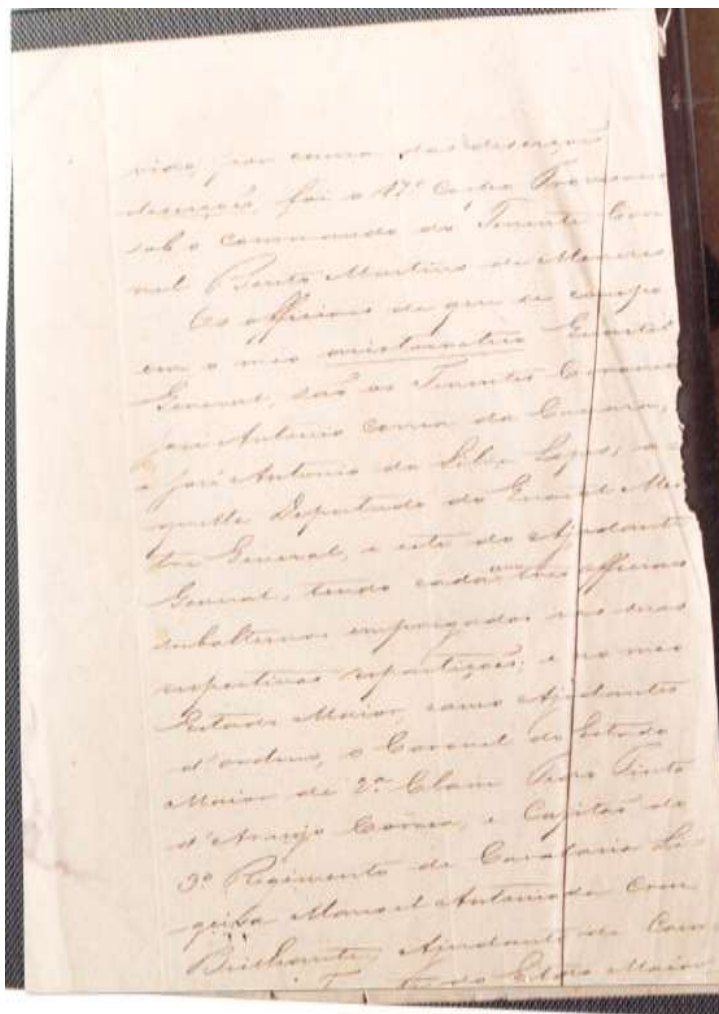 vido, por causa das deserções
deserções, foi o 17º Corpo Provisorio
sob o commando do Tenente Coro
nel Bento Martins de Menezes
Os officiaes de que se compo
em o meo aristocratico Quartel
General, são os Tenentes Coroneis
José Antonio Correa da Camara,
e José Antonio da Silva Lopes; a
quelle Deputado do Quartel Mes
tre General, e este do Ajudante
General, tendo cada um tres officiaes
subalternos empregados nas suas
respectivas repartições; e no meo
Estado Maior, como Ajudantes
d'ordens, o Coronel do Estado
Maior de 2ª Classe Pedro Pinto
d'Araujo Correa, e Capitão do
3º Regimento de Cavalaria Li
geira Manoel Antonio da Cruz
Brilhante, Ajudante de Cam
do Estado Maior